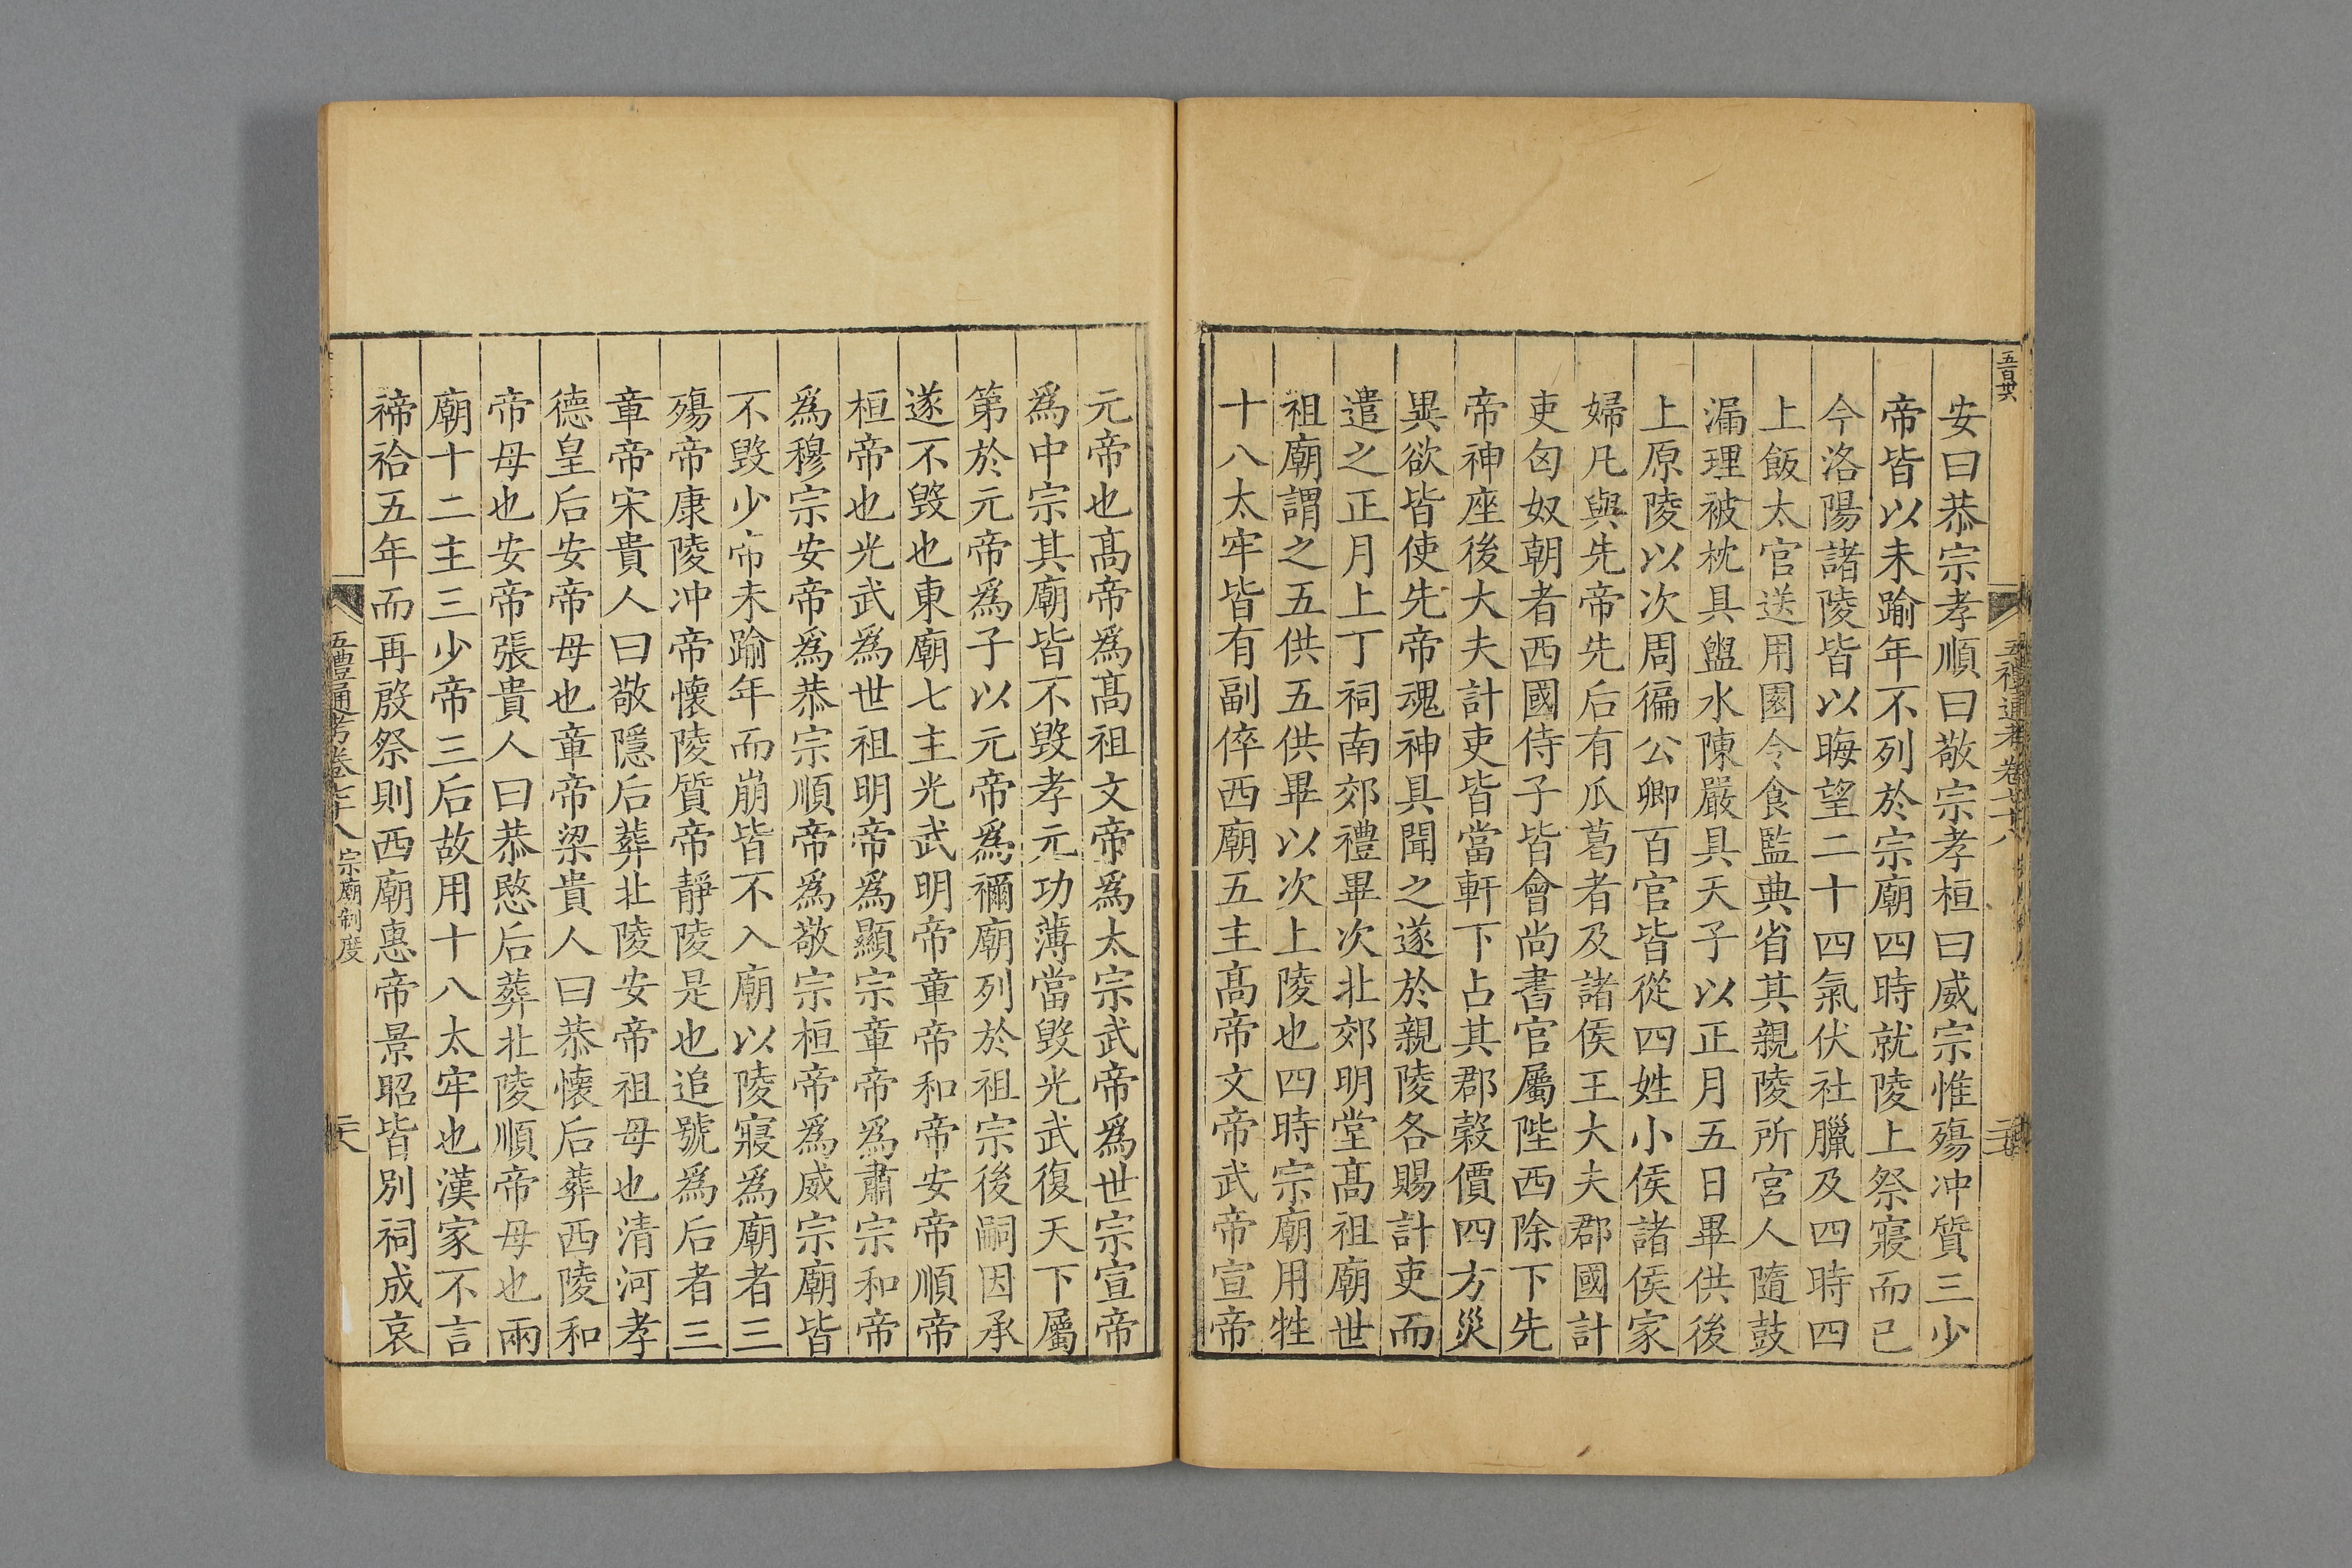 五百廿六
五禮通考卷七十八
安曰恭宗孝順曰敬宗孝桓曰威宗惟殤冲質三少
帝皆以未踰年不列於宗廟四時就陵上祭寢而已
今洛陽諸陵皆以晦望二十四氣伏社臘及四時四
上飯太官送用園令食監典省其親陵所宮人隨鼓
漏理被枕具盥水陳嚴具天子以正月五日畢供後
上原陵以次周徧公卿百官皆從四姓小侯諸侯家
婦凡與先帝先后有瓜葛者及諸侯王大夫郡國計
吏匈奴朝者西國侍子皆會尚書官屬陛西除下先
帝神座後大夫計吏皆當軒下占其郡穀價四方災
異欲皆使先帝魂神具聞之遂於親陵各賜計吏而
遣之正月上丁祠南郊禮畢次北郊明堂髙祖廟世
祖廟謂之五供五供畢以次上陵也四時宗廟用牲
十八太牢皆有副倅西廟五主髙帝文帝武帝宣帝
元帝也髙帝爲髙祖文帝爲太宗武帝爲世宗宣帝
爲中宗其廟皆不毀孝元功薄當毀光武復天下屬
第於元帝爲子以元帝爲禰廟列於祖宗後嗣因承
遂不毀也東廟七主光武明帝章帝和帝安帝順帝
桓帝也光武爲世祖明帝爲顯宗章帝爲肅宗和帝
爲穆宗安帝爲恭宗順帝爲敬宗桓帝爲威宗廟皆
不毀少帝未踰年而崩皆不入廟以陵寢爲廟者三
殤帝康陵冲帝懷陵質帝靜陵是也追號爲后者三
章帝宋貴人曰敬隱后葬北陵安帝祖母也清河孝
德皇后安帝母也章帝梁貴人曰恭懷后葬西陵和
帝母也安帝張貴人曰恭愍后葬北陵順帝母也兩
廟十二主三少帝三后故用十八太牢也漢家不言
禘祫五年而再殷祭則西廟惠帝景昭皆別祠成哀
五禮通考卷七十八 宗廟制度